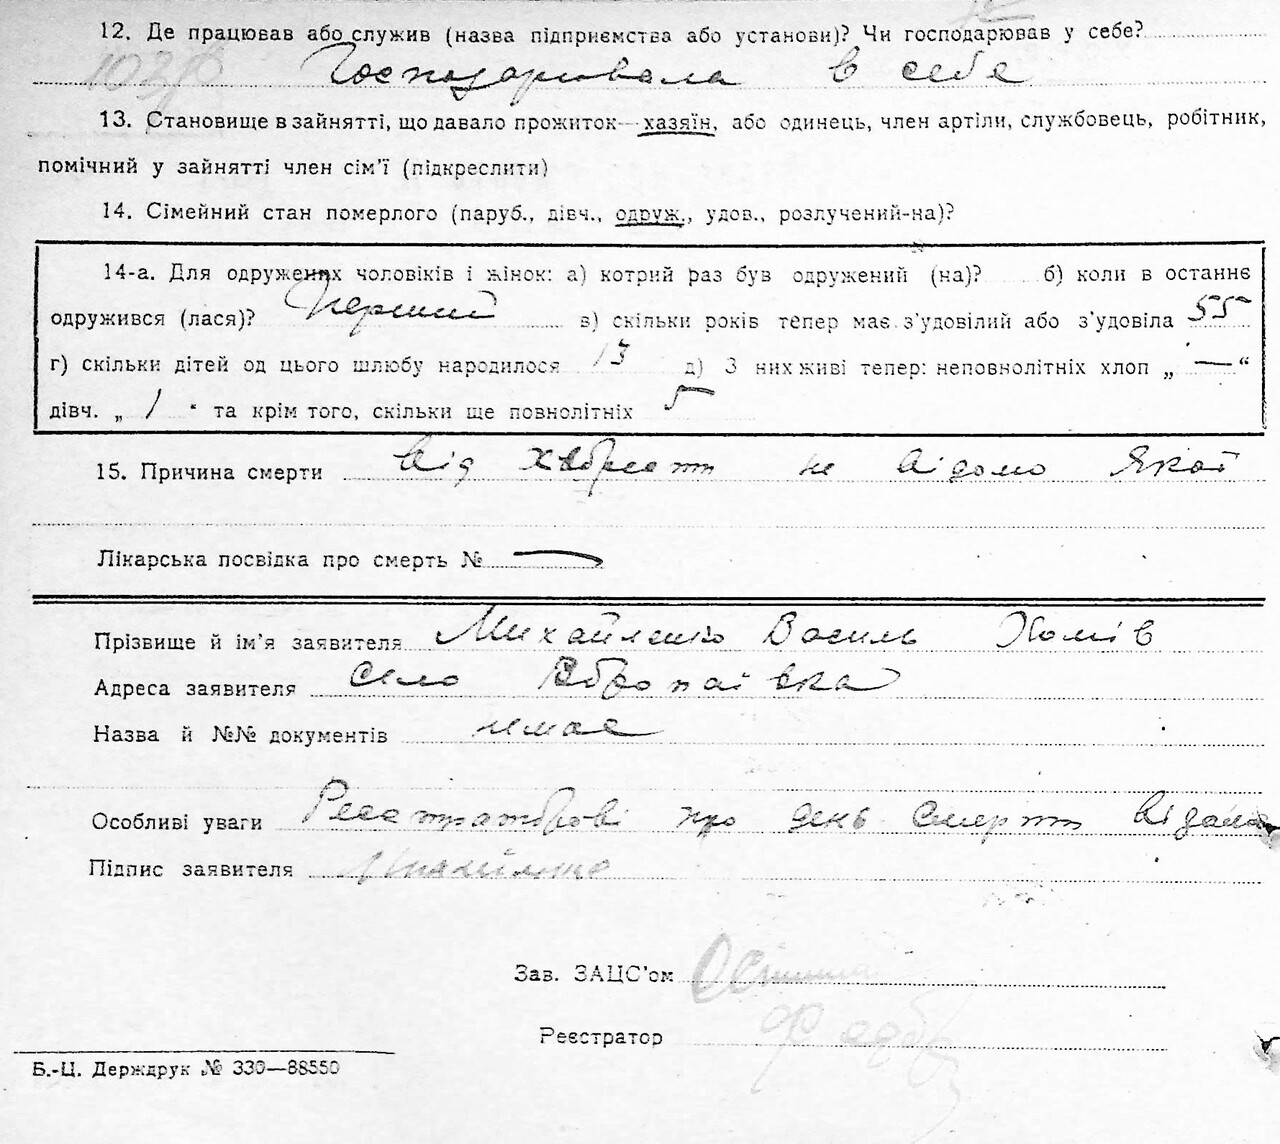 12. Де працював або служив (назва підприємства або установи)? Чи господарював у себе?
Господарювала в себе
13. Становище в зайнятті, що давало прожиток—хазяїн, або одинець, член артіли, службовець, робітник,
помічний у зайнятті член сім’ї (підкреслити)
14. Сімейний стан померлого (паруб., дівч., одруж., удов., розлучений-на)?
14-а. Для одружених чоловіків і жінок: а) котрий раз був одружений (на)? б) коли в останнє
одружився (лася)? Перший в) скільки років тепер має з’удовілий або з’удовіла 55
г) скільки дітей од цього шлюбу народилося 13 д) З них живі тепер: неповнолітніх хлоп „ — “
дівч. „ 1 “ та крім того, скільки ще повнолітніх 5
15. Причина смерти від не відомо якої
Лікарська посвідка про смерть № —
Прізвище й ім’я заявителя Михайленко Василь Хомів
Адреса заявителя село
Назва й №№ документів немає
Особливі уваги про день смерти
Підпис заявителя
Зав. ЗАЦС’ом
Реєстратор
Б.-Ц. Держдрук № 330—88550